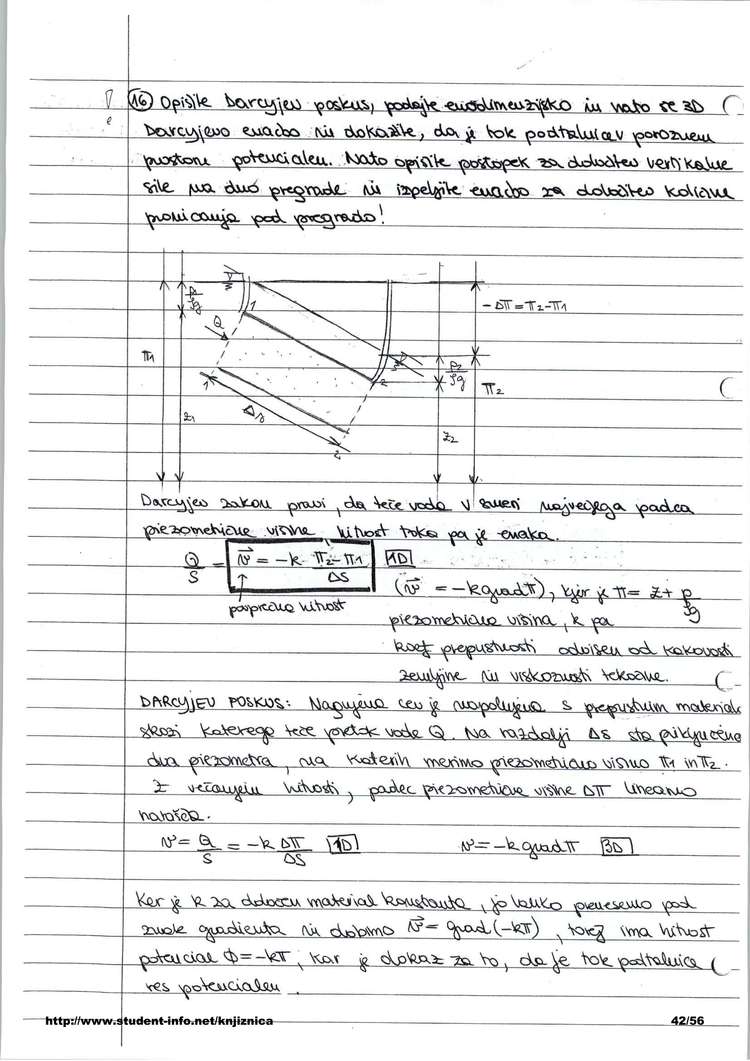 16 Opišite Darcyjev poskus, podajte enodimenzijsko in nato še 3D
Darcyjevo enačbo in dokažite, da je tok podtalnice v poroznem
prostoru potencialen. Nato opišite postopek za določitev vertikalne
sile na dno pregrade in izpeljite enačbo za določitev količine
pronicanja pod pregrado!
p1/ρg
1
Q
π1
z1
1
Δs
2
2
- Δπ = π2 - π1
p2/ρg
π2
z2
Darcyjev zakon pravi, da teče voda v smeri največjega padca
piezometrične višine, hitrost toka pa je enaka.
Q/S = v⃗ = -k · (π2 - π1)/ΔS 1D
povprečna hitrost
(v⃗ = -k grad π), kjer je π = z + p/ρg
piezometrična višina, k pa
koef prepustnosti odvisen od kakovosti
zemljine in viskoznosti tekočine.
DARCYJEV POSKUS: Nagnjena cev je napolnjena s prepustnim materialom
skozi katerega teče pretok vode Q. Na razdalji Δs sta priključena
dva piezometra, na katerih merimo piezometrično višino π1 in π2.
Z večanjem hitrosti, padec piezometrične višine Δπ linearno
narašča.
v = Q/S = -k Δπ/ΔS 1D v = -k grad π 3D
Ker je k za določen material konstanta, jo lahko prenesemo pod
znak gradienta in dobimo v⃗ = grad (-kπ), torej ima hitrost
potencial Φ = -kπ, kar je dokaz za to, da je tok podtalnice
res potencialen.
http://www.student-info.net/knjiznica 42/56